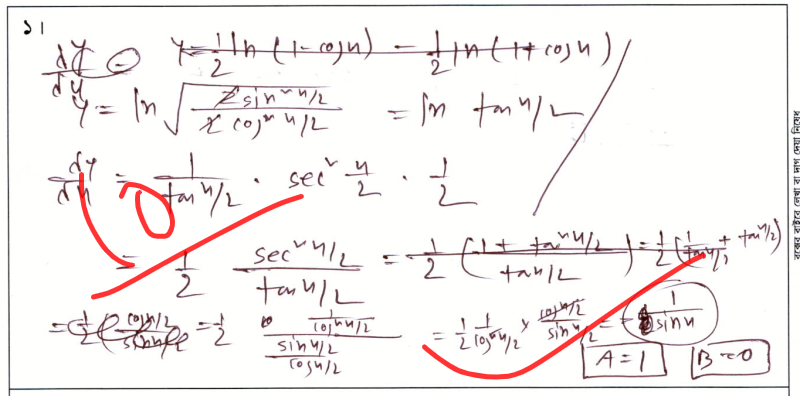 ১।
y = 1/2 ln (1 - cosx) - 1/2 ln (1 + cosx)
dy/dx =
y = ln √(2 sin² x/2 / 2 cos² x/2) = ln tan x/2
dy/dx = 1/(tan x/2) · sec² x/2 · 1/2
= 1/2 sec² x/2 / tan x/2 = 1/2 (1 + tan² x/2 / tan x/2) = 1/2 (1/tan x/2 + tan x/2)
= 1/2 (cos x/2 / sin x/2) = 1/2 · (1/cos² x/2) / (sin x/2 / cos x/2) = 1/2 1/cos² x/2 × cos x/2 / sin x/2 = 1/sinx
A = 1 B = 0
0
বক্সের বাইরে লেখা বা দাগ দেয়া নিষেধ